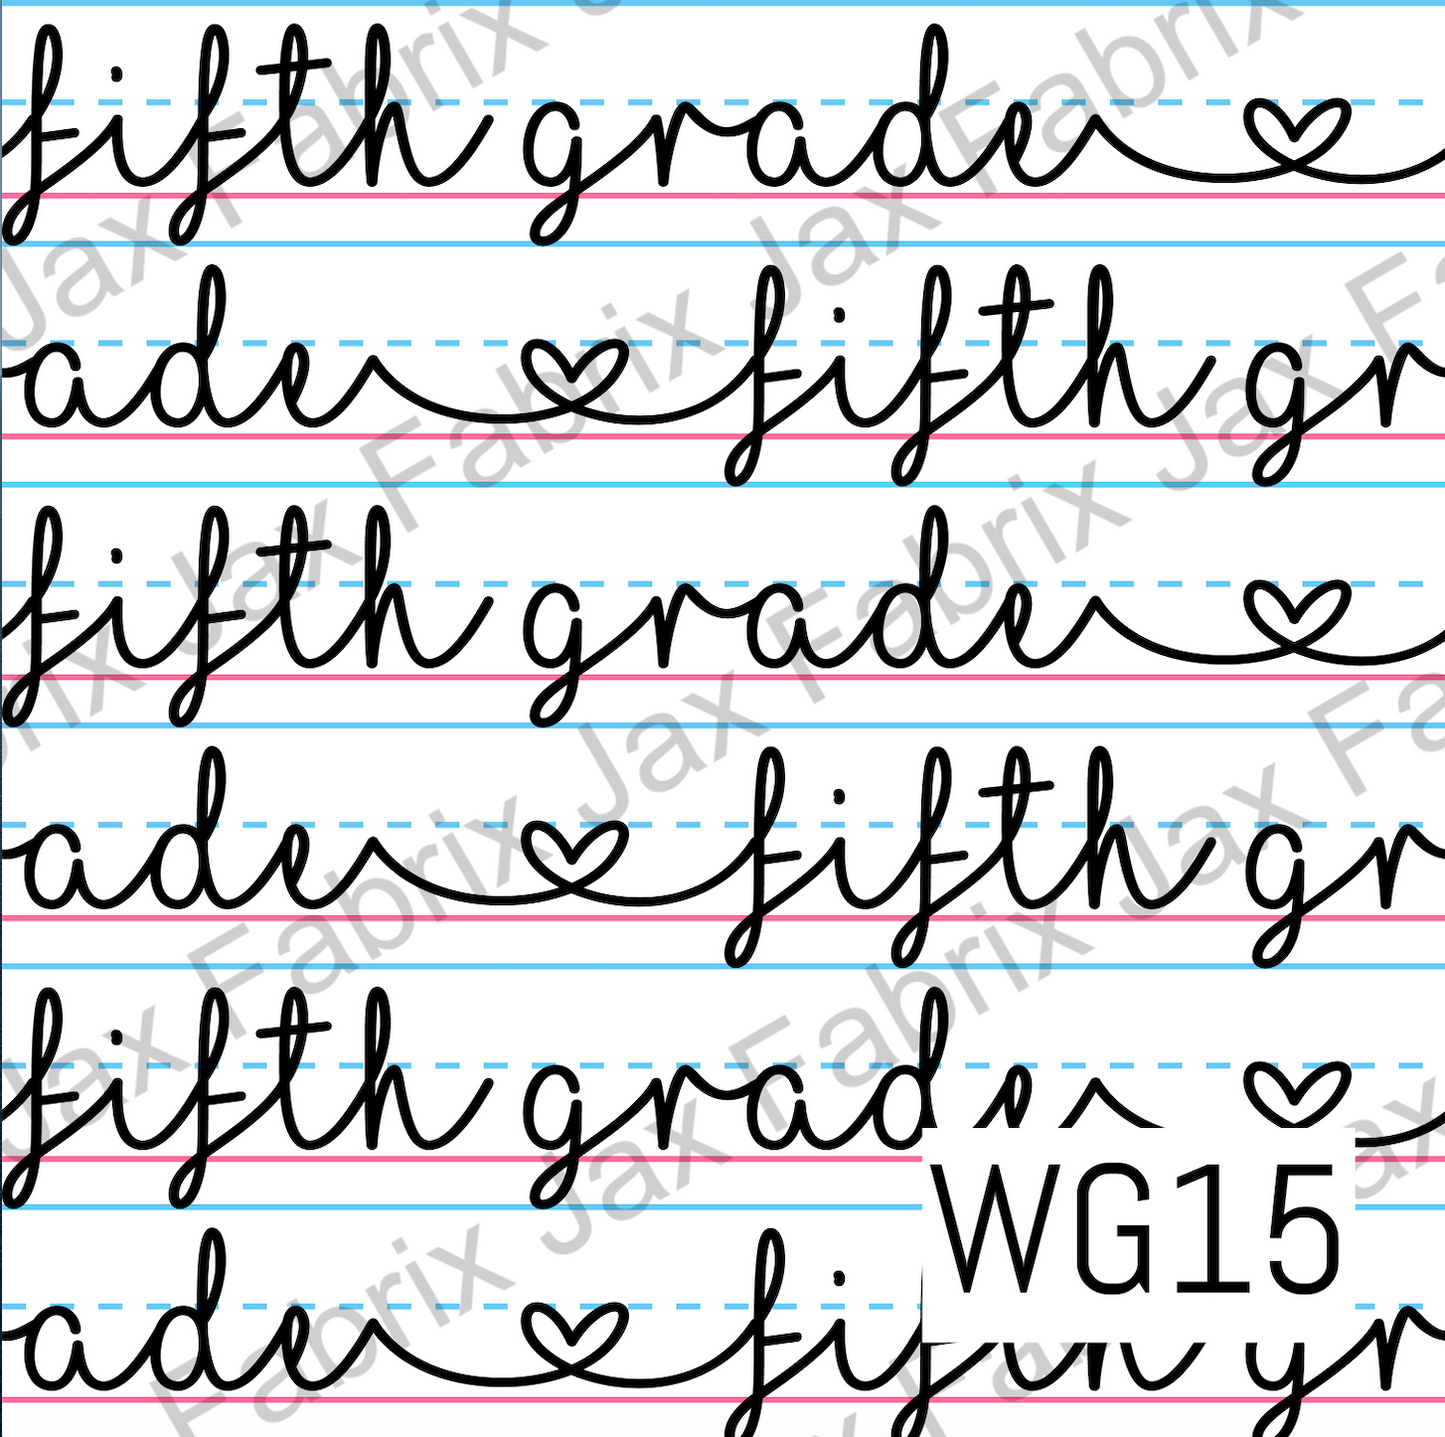 fifth grade
ade fifth gr
fifth grade
ade fifth gr
fifth grade
WG15
ade fifth gr
Jax Fabrix Jax Fabrix Jax Fabrix